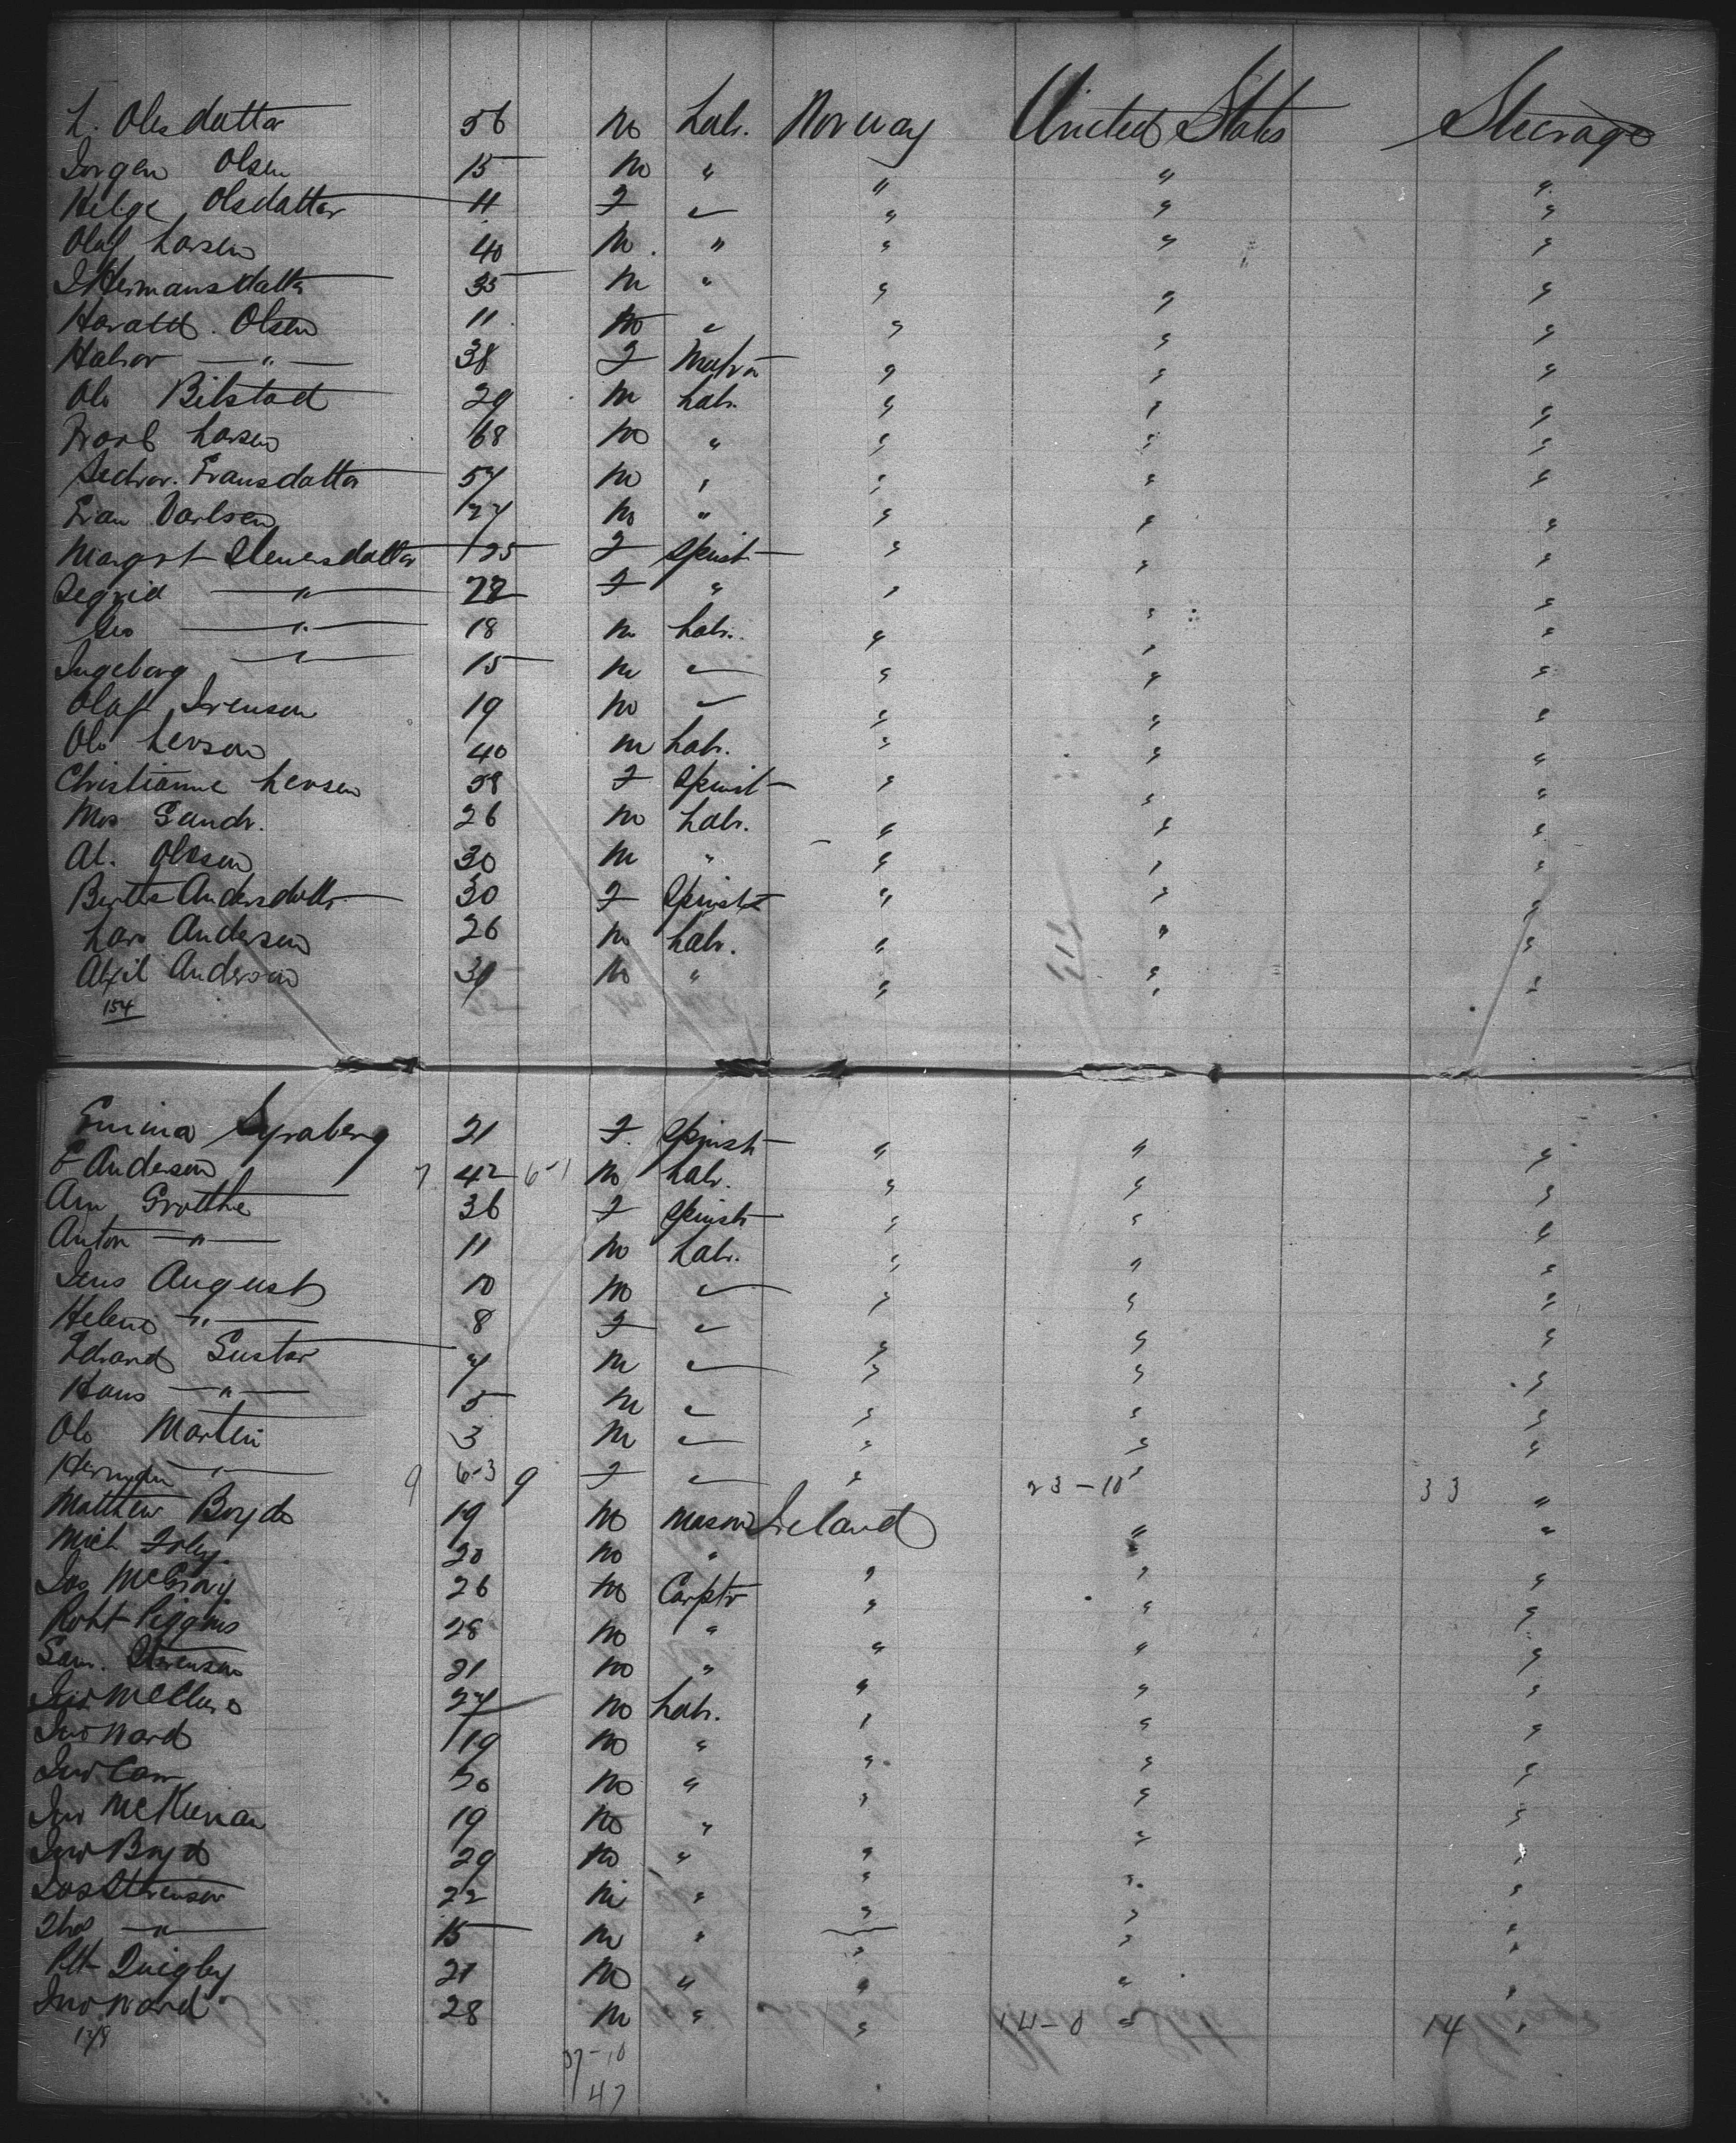 L. Olesdatter 56 m Labr. Norway United States Steerage
Jorgen Olsen 15 m " " " "
Helge Olsdatter 11 F " " " "
Olaf Larsen 40 m " " " "
I Hermansdattr 35 m " " " "
Harald Olsen 11 m " " " "
Halvor — " — 38 F Matrn " " "
Ole Bilstad 29 m Labr. " " "
Larsen 68 m " " " "
Fransdatter 57 m " " " "
Evan 27 m " " " "
Margrt 25 F Spinst " " "
Segrid — " — 22 F " " " "
— " — 18 m Labr. " " "
Ingeborg — " — 15 m " " " "
Olaf Ivenson 19 m " " " "
Ole Lerson 40 m Labr. " " "
Christianne Lersen 38 F Spinst " " "
26 m Labr. " " "
Al. Olsson 30 m " " " "
Berths Andersdattr 30 F Spinst " " "
Lars Andersen 26 m Labr. " " "
Axil Anderson 31 m " " " "
154
Emina Syraberg 21 F. Spinst " " "
E Anderson 7 42 6-1 m Labr. " " "
Ann Grutthe 36 F Spinst " " "
Anton — " — 11 m Labr. " " "
Jens August 10 m " " " "
Helena — " — 8 F " " " "
Edvard Gustav 7 m " " " "
Hans — " — 5 m " " " "
Ole Martin 3 m " " " "
— " — 9 6-3 9 F " " 23-10 " 33 "
Matthew Boyd 19 m Mason Ireland " "
Mich Foley 20 m " " " "
Jos McGrory 26 m Carptr " " "
Robt Piggins 28 m " " " "
Saml. Stevenson 21 m " " " "
Jno McClure 27 m Labr. " " "
Jno Ward 19 m " " " "
Jno Carr 30 m " " " "
Jno McKiernan 19 m " " " "
Jno Boyd 29 m " " " "
Jos Stevenson 22 m " " " "
Thos — " — 15 m " " " "
Patk Quigley 21 m " " " "
Jno Ward 28 m " " 14-0 " 14 "
178
37-10
47